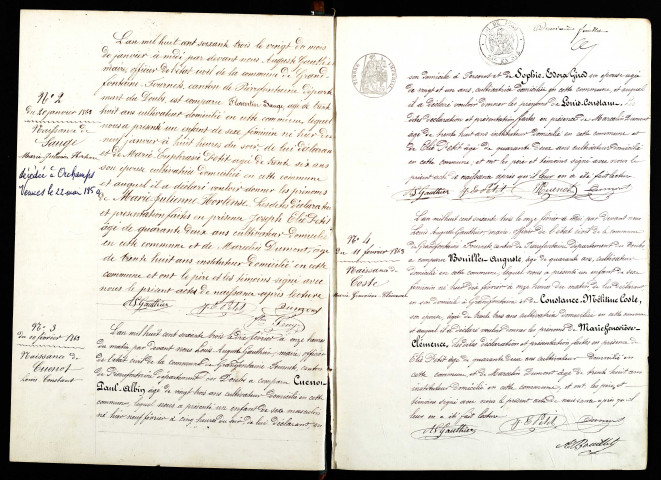 N° 2
du 20 janvier 1863
Naissance de
Faivre
Marie Julienne Hortense
décédée à Orchamps
Vennes le 22 mars 195
L'an mil huit cent soixante trois le vingt du mois
de janvier à midi par devant nous Auguste Gauthier
maire, officier de l'état civil de la commune de Grand
fontaine Fournets, canton de Pierrefontaine départe
ment du Doubs est comparu Florentin agé de trente
ans cultivateur domicilié en cette commune lequel
nous a présenté un enfant de sexe féminin né hier dix
neuf janvier à huit heures du soir, de lui déclarant
et de Marie Euphrasie Petit agée de trente six ans
son épouse cultivatrice domiciliée en cette commune
et auquel il a déclaré vouloir donner les prénoms
de Marie Julienne Hortense. Lesdites déclaration
et présentation faites en présence Joseph Elie Petit
âgé de quarante deux ans cultivateur domicilié
en cette commune et de Marcelin Dumont, âgé
de trente huit ans instituteur domicilié en cette
commune et ont le père et les témoins signé avec
nous le présent acte de naissance après lecture
A. Gauthier J. E. Petit Dumont
N° 3
du 10 février 1863
Naissance de
Cuenot
Louis Constant
L'an mil huit cent soixante trois le dix février à onze heures
du matin par devant nous Louis Auguste Gauthier, maire, officier
de l'état civil de la commune de Grandfontaine Fournets, canton
de Pierrefontaine département du Doubs a comparu Cuenot
Paul-Albin agé de vingt trois ans cultivateur domicilié en cette
commune, lequel nous a présenté un enfant de sexe masculin
né hier neuf février à cinq heures du soir de lui déclarant en
Deuxième feuillet
son domicile à et de Sophie Dora Girod son épouse agée
de vingt et un ans, cultivatrice domiciliée en cette commune, et auquel
il a déclaré vouloir donner les prénoms de Louis-Constant. Les
dites déclaration et présentation faites en présence de Marcelin Dumont
agé de trente huit ans instituteur domicilié en cette commune et
de Elie Petit agé de quarante deux ans cultivateur domicilié
en cette commune, et ont le père et témoins signé avec nous le
présent acte de naissance après qu'il leur en a été fait lecture
A. Gauthier J. E. Petit P. Cuenot Dumont
N° 4
Du 11 février 1863
Naissance de
Coste
Marie Geneviève Clémence
L'an mil huit cent soixante trois le onze février à midi par devant nous
Louis Auguste Gauthier, maire, officier de l'état civil de la commune
de Grandfontaine Fournets canton de Pierrefontaine département du Doubs
a comparu Bouillet Auguste agé de quarante ans, cultivateur
domicilié en cette commune, lequel nous a présenté un enfant de sexe
féminin né hier dix février à onze heures du matin de lui déclarant
en son domicile à Grandfontaine et de Constance Mélitine Coste,
son épouse, agée de trente trois ans cultivatrice domiciliée en cette commune
et auquel il a déclaré vouloir donner les prénoms de Marie Geneviève
Clémence. Lesdites déclaration et présentation faites en présence de
Elie Petit agé de quarante deux ans cultivateur domicilié en
cette commune, et de Marcelin Dumont agé de trente huit ans
instituteur domicilié en cette commune, et ont les père et
témoins signé avec nous le présent acte de naissance après qu'il
leur en a été fait lecture
A. Gauthier J. E. Petit Dumont
A. Bouillet